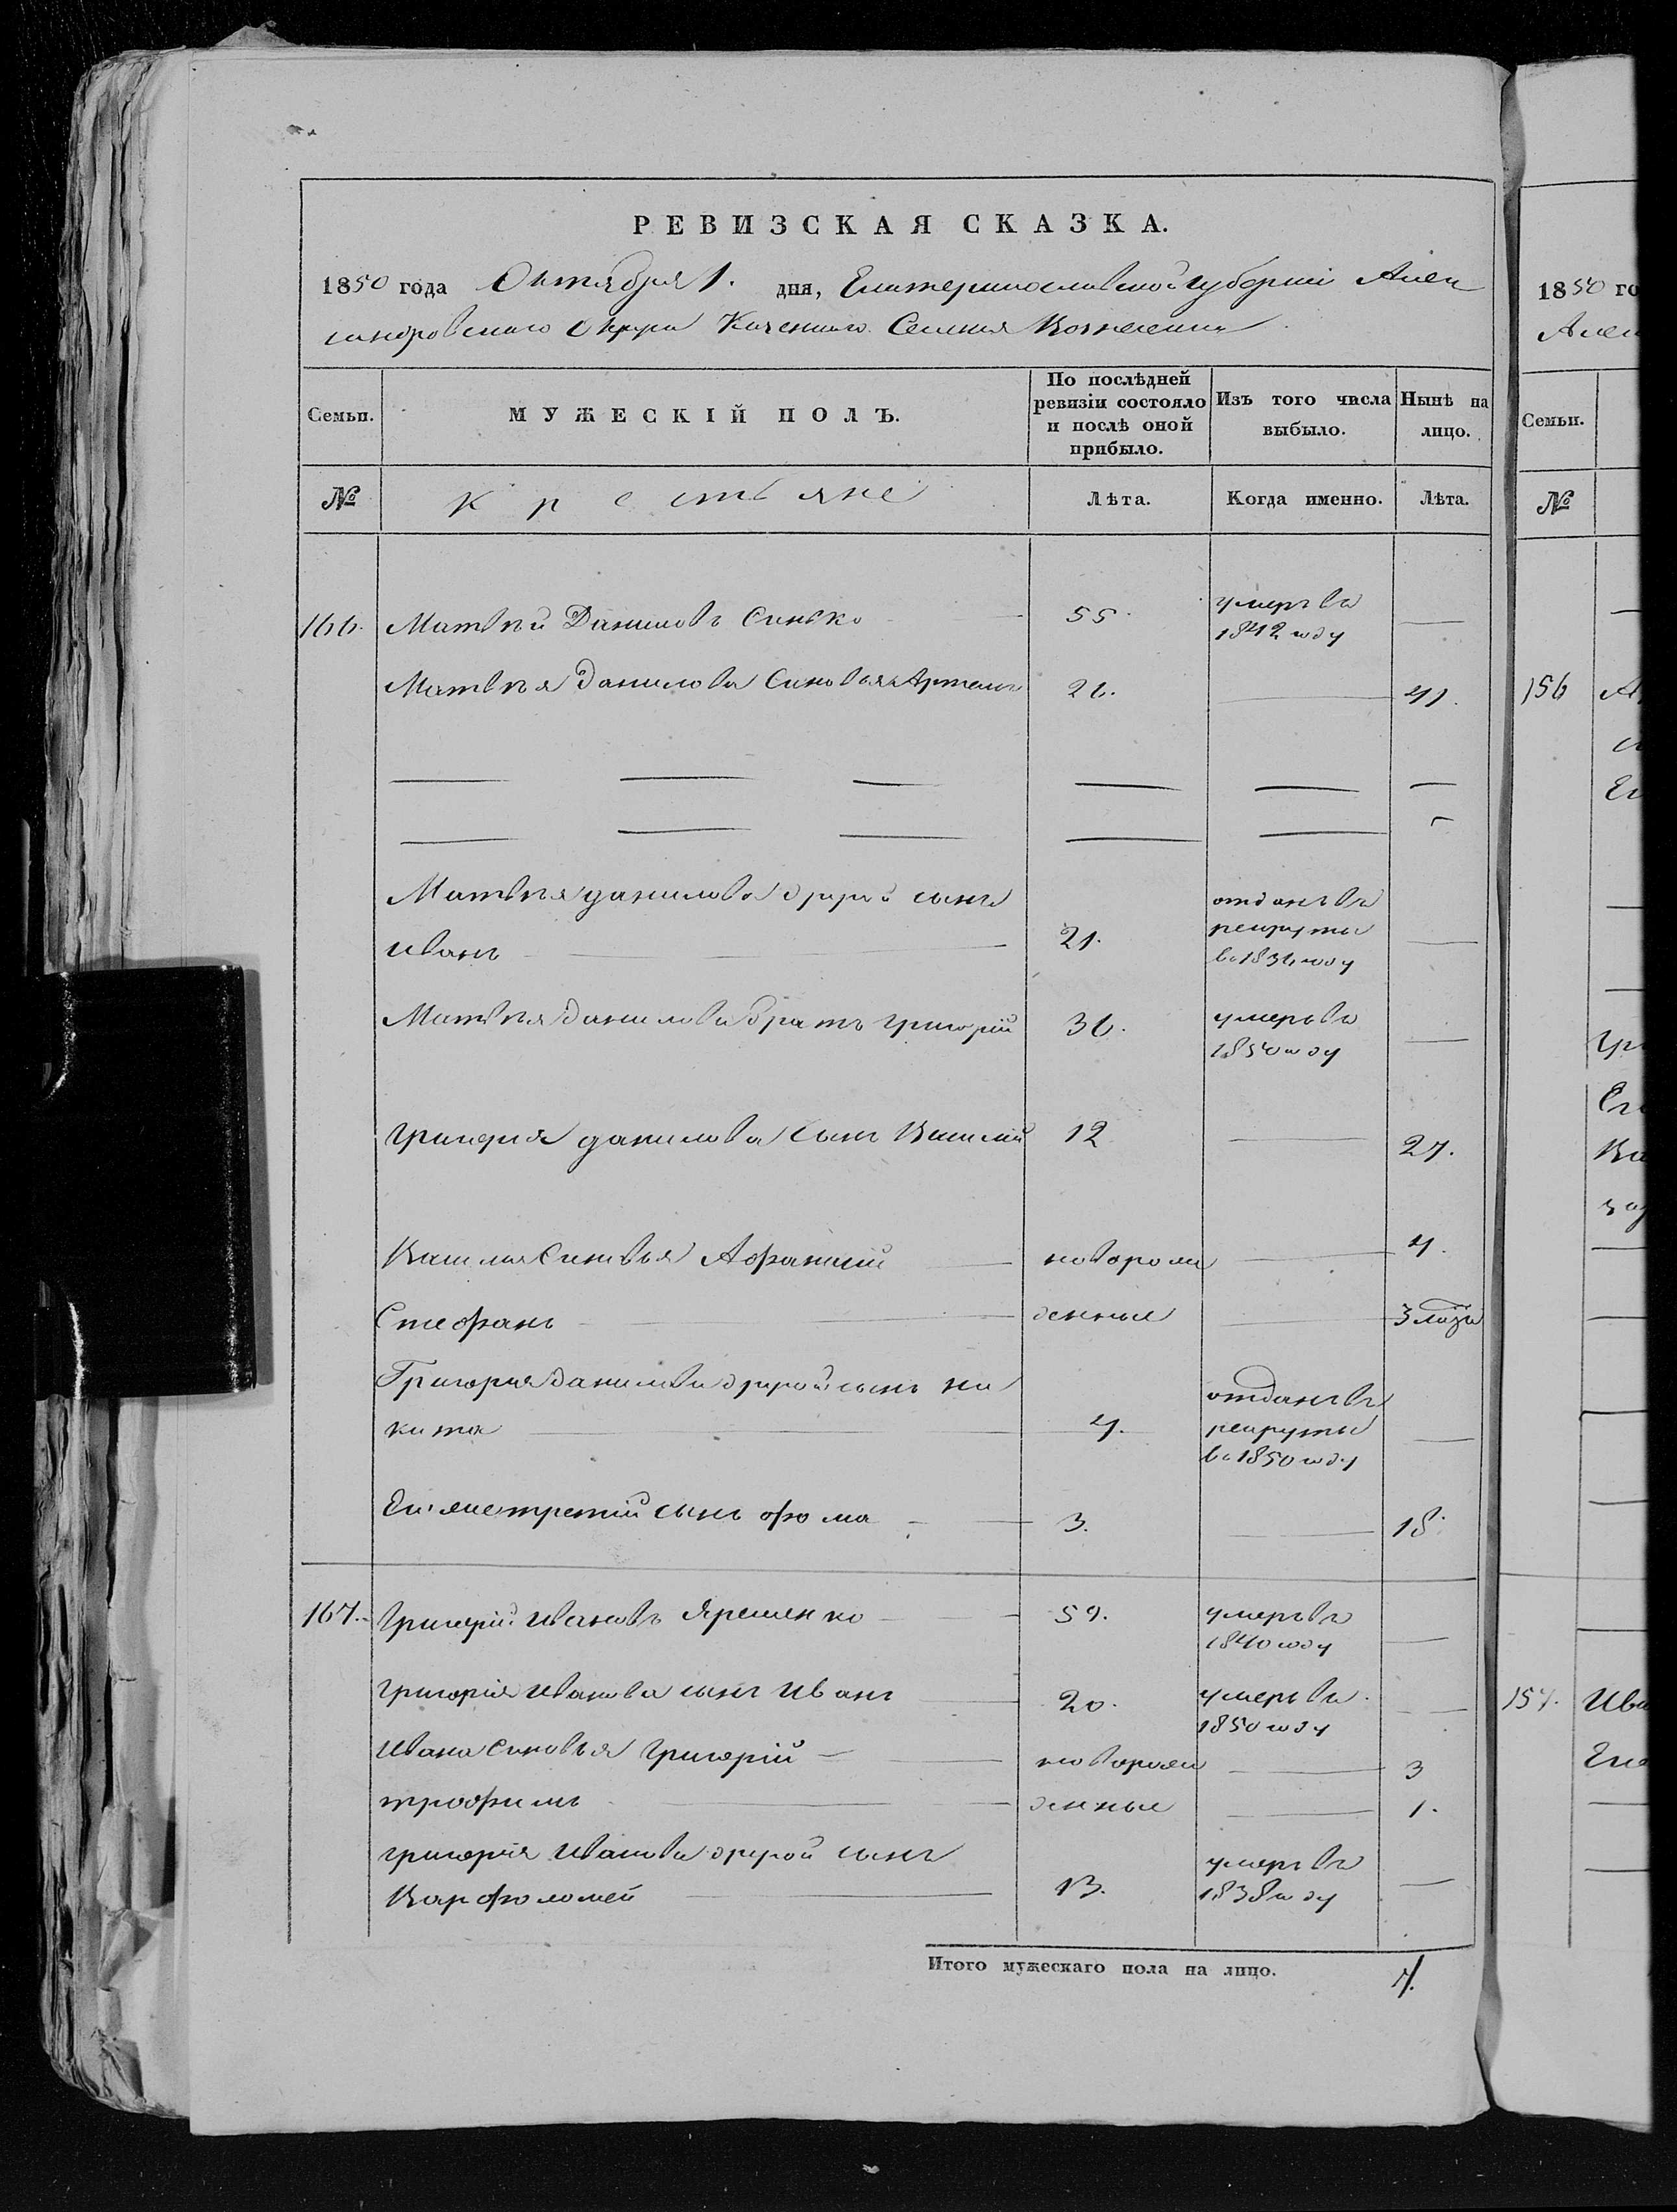 РЕВИЗСКАЯ СКАЗКА.
1850 года Октября 1. дня, Екатеринославской Губерніи Алек
сандровскаго Округа Казеннаго Селенія Вознесенки
Семьи.
МУЖЕСКІЙ ПОЛЪ.
По послѣдней
ревизіи состояло
и послѣ оной
прибыло.
Изъ того числа
выбыло.
Нынѣ на
лицо.
№ крестьяне Лѣта. Когда именно. Лѣта.
166. Матвѣй Даниловъ Синько 55. умеръ въ
1842 году
Матвѣя Данилова Синовья Артемъ 26. 41.
Матвѣя данилова другой сынъ отданъ въ
иванъ 21. рекруты
въ 1836 году
Матвѣя данилова братъ григорій 36. умеръ въ
1850 году
григорія данилова сынъ Василій 12 27.
Василія Синовья Афанасій новорож 4.
Стефанъ денные 3 мѣся
Григорія данилова другой сынъ ни отданъ въ
кита 4. рекруты
въ 1850 году
Его же третій сынъ фома 3. 18.
167. григорій ивановъ Яременко 59. умеръ въ
1840 году
григорія иванова сынъ Иванъ 20. умеръ въ
1850 году
ивана синовья григорій новорож 3
трофимъ денные 1.
григорія иванова другой сынъ умеръ въ
Варфоломей 13. 1838 году
Итого мужескаго пола на лицо. 7.
1850 го
Алек
Семьи.
№
156
157. Ива